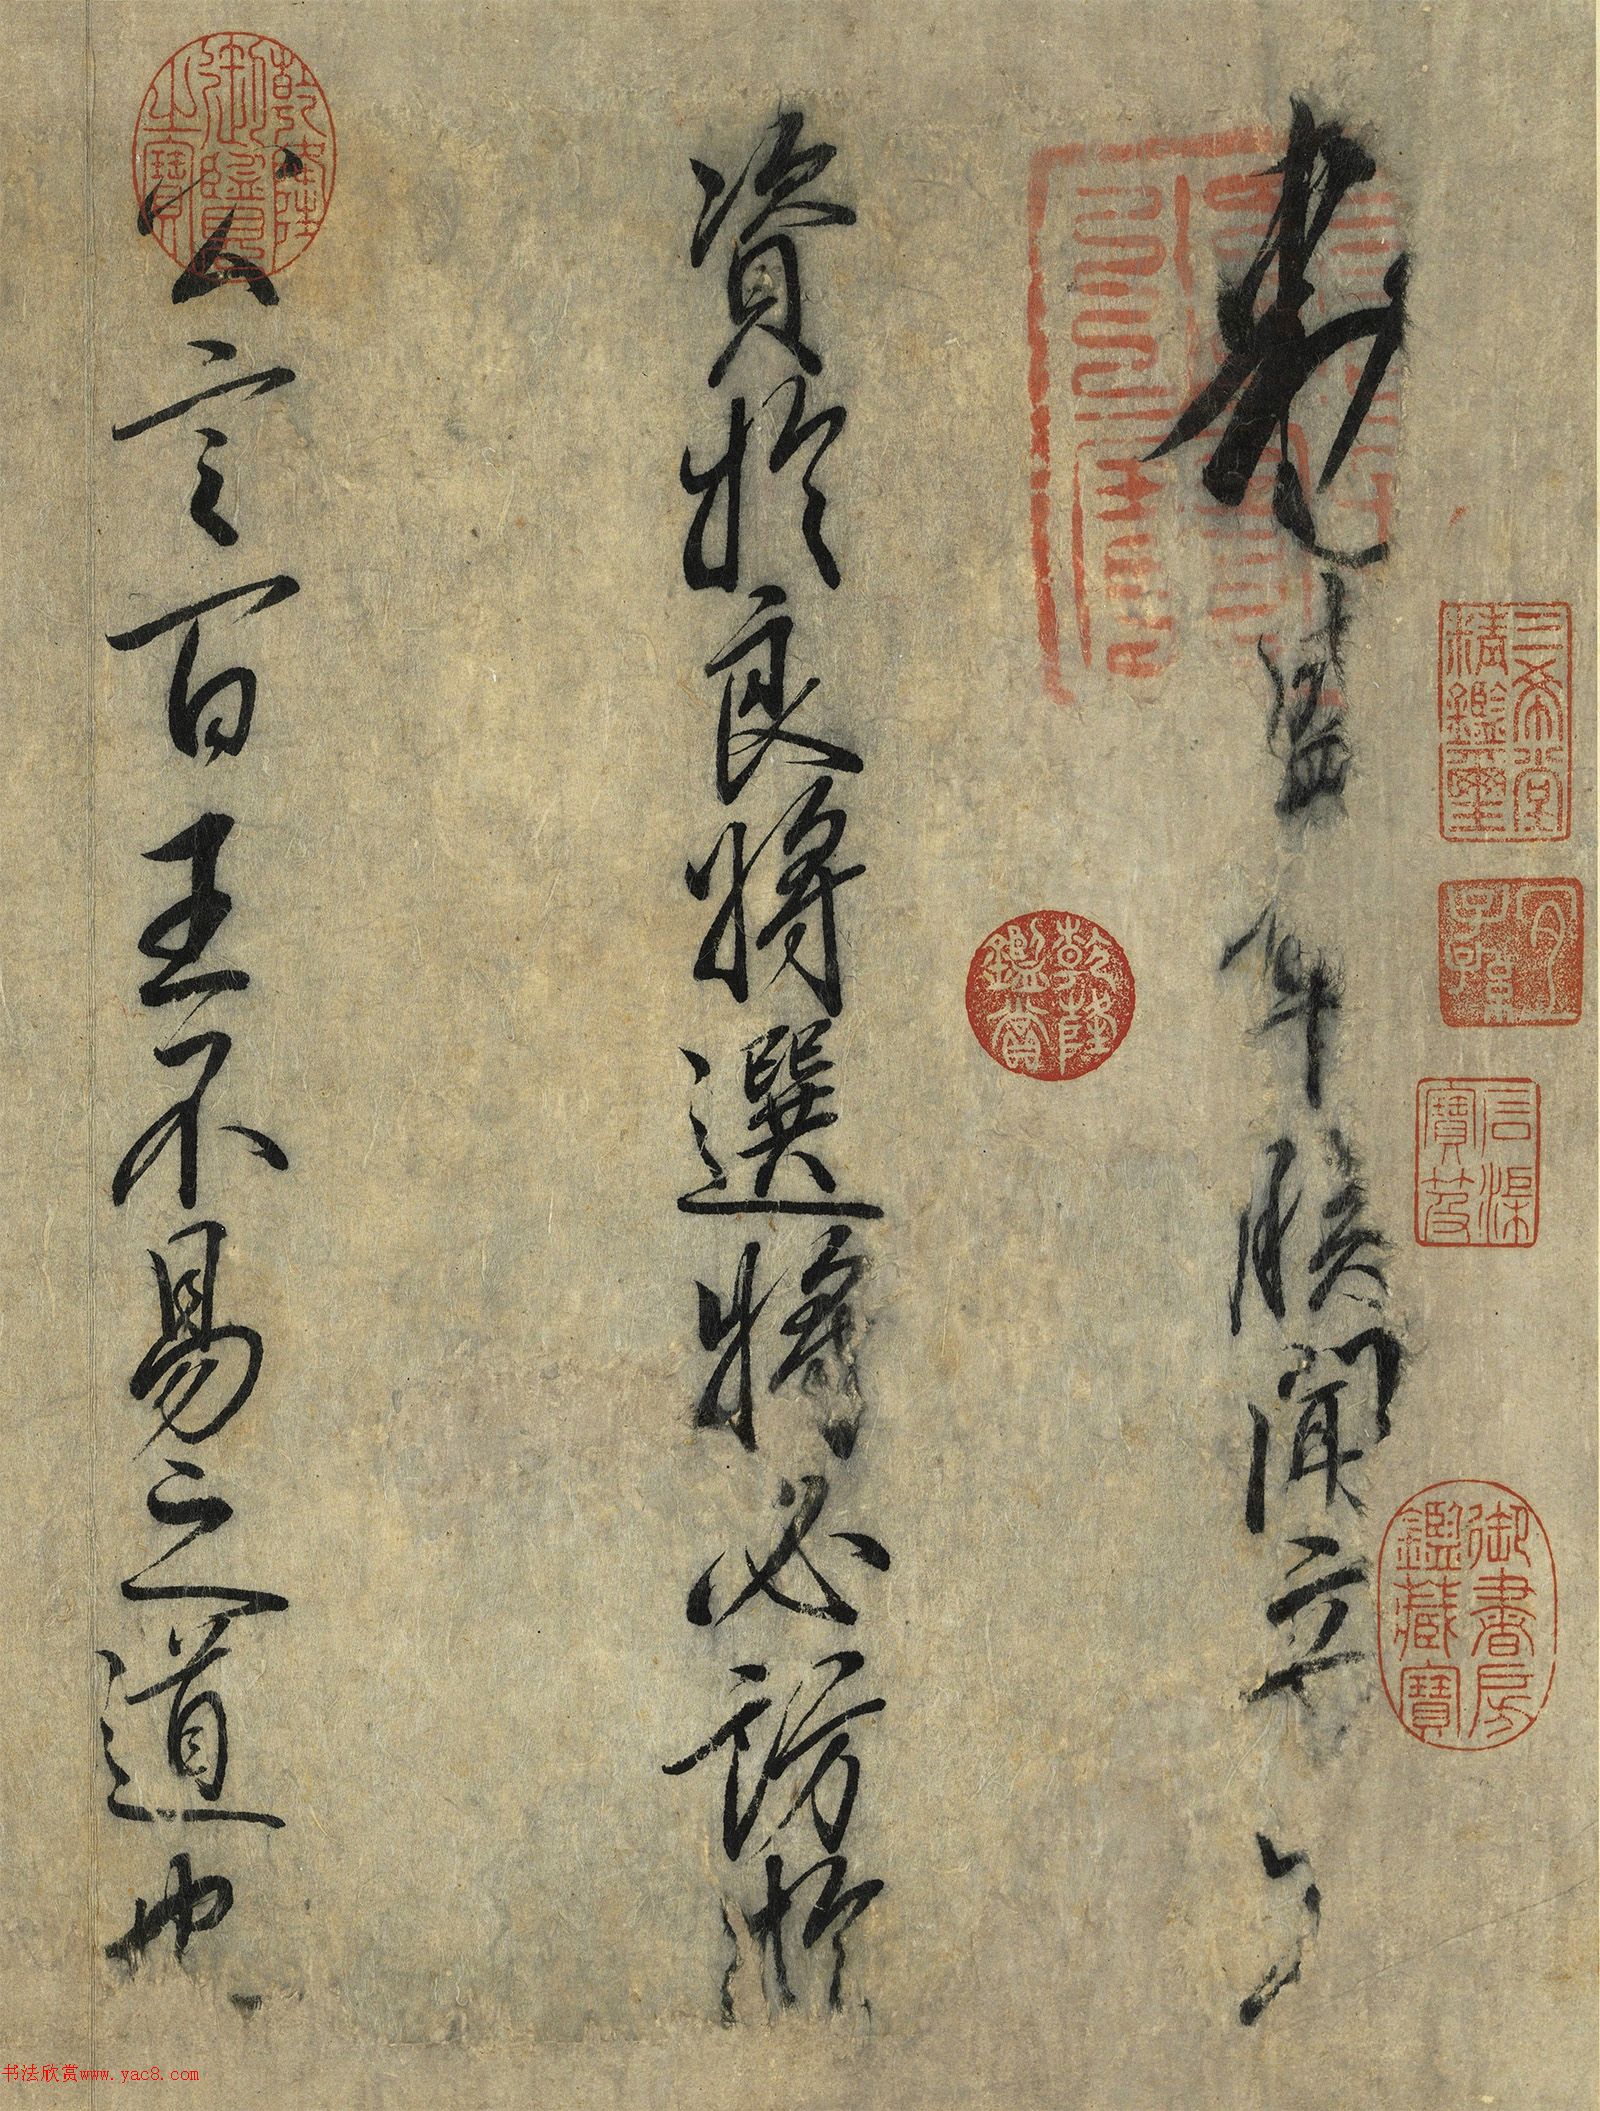 年朕聞立
資於良將選將必訪於
公言百王不易之道也
乾隆御覽之寶
三希堂精鑑璽
宜子孫
乾隆鑑賞
石渠寶笈
御書房鑑藏寶
书法欣赏www.yac8.com